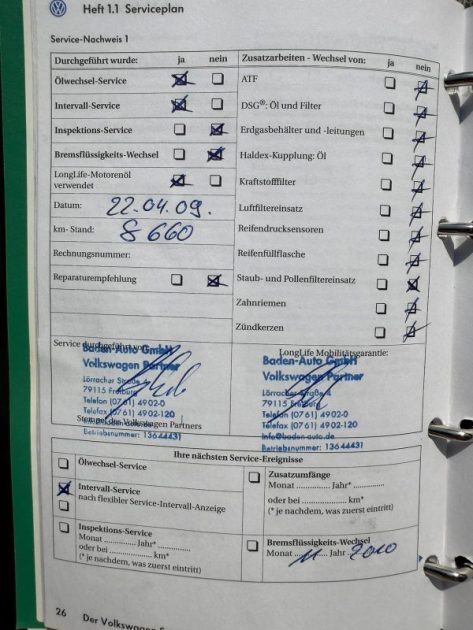 Heft 1.1 Serviceplan
Service-Nachweis 1
Durchgeführt wurde: ja nein
Ölwechsel-Service
Intervall-Service
Inspektions-Service
Bremsflüssigkeits-Wechsel
LongLife-Motorenöl
verwendet
Datum: 22.04.09.
km- Stand: 8 660
Rechnungsnummer:
Reparaturempfehlung
Zusatzarbeiten - Wechsel von: ja nein
ATF
DSG®: Öl und Filter
Erdgasbehälter und -leitungen
Haldex-Kupplung: Öl
Kraftstofffilter
Luftfiltereinsatz
Reifendrucksensoren
Reifenfüllflasche
Staub- und Pollenfiltereinsatz
Zahnriemen
Zündkerzen
Service durchgeführt von:
Baden-Auto GmbH
Volkswagen Partner
Lörracher Straße
79115 Freiburg
Telefon (0761) 4902-0
Telefax (0761) 4902-120
Stempel des Volkswagen Partners
Betriebsnummer: 13644431
LongLife Mobilitätsgarantie:
Baden-Auto GmbH
Volkswagen Partner
Lörracher Straße
79115 Freiburg
Telefon (0761) 4902-0
Telefax (0761) 4902-120
info@baden-auto.de
Betriebsnummer: 13644431
Ihre nächsten Service-Ereignisse
Ölwechsel-Service
Intervall-Service
nach flexibler Service-Intervall-Anzeige
Inspektions-Service
Monat ............ Jahr*............
oder bei ................ km*
(* je nachdem, was zuerst eintritt)
Zusatzumfänge
Monat ............ Jahr*............
oder bei ................ km*
(* je nachdem, was zuerst eintritt)
Bremsflüssigkeits-Wechsel
Monat 11 Jahr 2010
26 Der Volkswagen